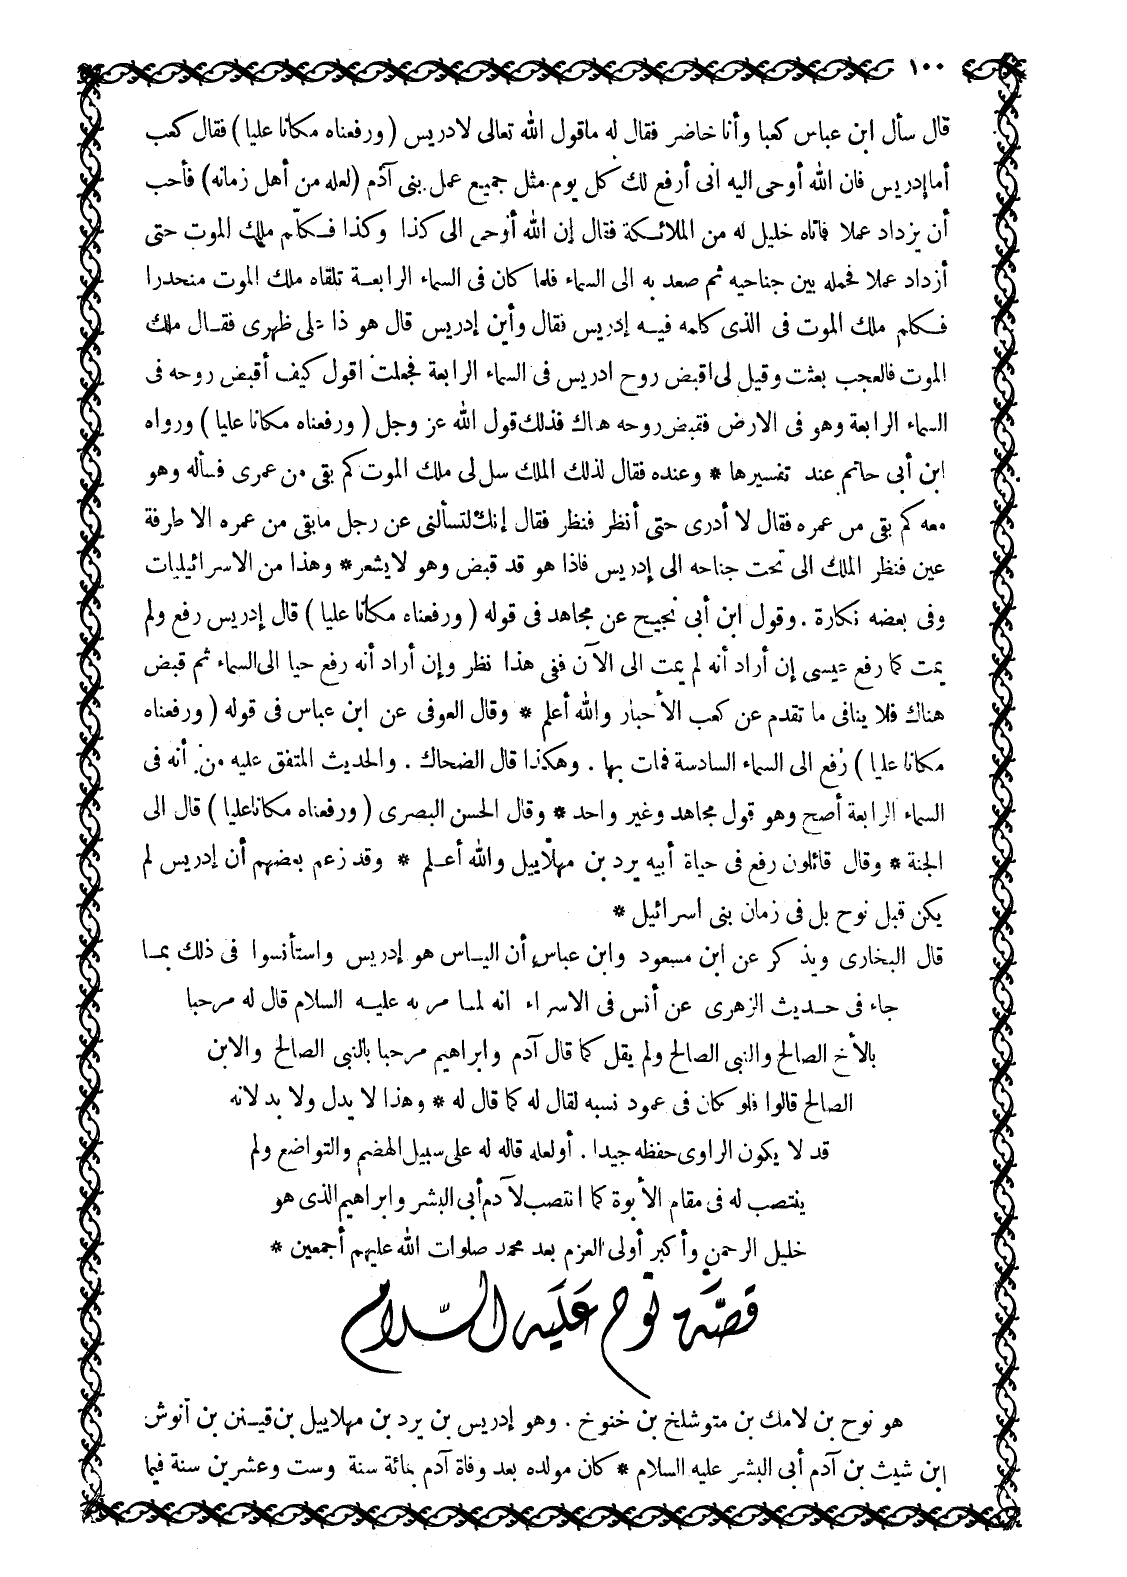 ١٠٠
قال سأل ابن عباس كعبا وأنا حاضر فقال له ماقول الله تعالى لادريس ( ورفعناه مكانا عليا ) فقال كعب
أما إدريس فان الله أوحى اليه انى أرفع لك كل يوم مثل جميع عمل بنى آدم (لعله من أهل زمانه) فأحب
أن يزداد عملا فاتاه خليل له من الملائكة فقال إن الله أوحى الى كذا وكذا فكلّم ملك الموت حتى
أزداد عملا فحمله بين جناحيه ثم صعد به الى السماء فلما كان فى السماء الرابعة تلقاه ملك الموت منحدرا
فكلم ملك الموت فى الذى كلمه فيه إدريس فقال وأين إدريس قال هو ذا على ظهرى فقال ملك
الموت فالعجب بعثت وقيل لى اقبض روح ادريس فى السماء الرابعة فجعلت اقول كيف أقبض روحه فى
السماء الرابعة وهو فى الارض فقبض روحه هناك فذلك قول الله عز وجل ( ورفعناه مكانا عليا ) ورواه
ابن أبى حاتم عند تفسيرها * وعنده فقال لذلك الملك سل لى ملك الموت كم بقى من عمرى فسأله وهو
معه كم بقى من عمره فقال لا أدرى حتى أنظر فنظر فقال إنك لتسألنى عن رجل مابقى من عمره الا طرفة
عين فنظر الملك الى تحت جناحه الى إدريس فاذا هو قد قبض وهو لايشعر * وهذا من الاسرائيليات
وفى بعضه نكارة . وقول ابن أبى نجيح عن مجاهد فى قوله ( ورفعناه مكانا عليا ) قال إدريس رفع ولم
يمت كما رفع عيسى إن أراد أنه لم يمت الى الآن ففى هذا نظر وإن أراد أنه رفع حيا الى السماء ثم قبض
هناك فلا ينافى ما تقدم عن كعب الأحبار والله أعلم * وقال العوفى عن ابن عباس فى قوله ( ورفعناه
مكانا عليا ) رُفع الى السماء السادسة فمات بها . وهكذا قال الضحاك . والحديث المتفق عليه من أنه فى
السماء الرابعة أصح وهو قول مجاهد وغير واحد * وقال الحسن البصرى ( ورفعناه مكاناعليا ) قال الى
الجنة * وقال قائلون رفع فى حياة أبيه يرد بن مهلاييل والله أعلم * وقد زعم بعضهم أن إدريس لم
يكن قبل نوح بل فى زمان بنى اسرائيل *
قال البخارى ويذكر عن ابن مسعود وابن عباس أن الياس هو إدريس واستأنسوا فى ذلك بما
جاء فى حديث الزهرى عن أنس فى الاسراء انه لما مر به عليه السلام قال له مرحبا
بالأخ الصالح والنبى الصالح ولم يقل كما قال آدم وابراهيم مرحبا بالنبى الصالح والابن
الصالح قالوا فلو كان فى عمود نسبه لقال له كما قال له * وهذا لا يدل ولا بد لانه
قد لا يكون الراوى حفظه جيدا . أولعله قاله له على سبيل الهضم والتواضع ولم
ينتصب له فى مقام الأبوة كما انتصب لآدم أبى البشر وابراهيم الذى هو
خليل الرحمن وأكبر أولى العزم بعد محمد صلوات الله عليهم أجمعين *
قصّة نوح عَليه السّلام
هو نوح بن لامك بن متوشلخ بن خنوخ . وهو إدريس بن يرد بن مهلاييل بن قينن بن آنوش
ابن شيث بن آدم أبى البشر عليه السلام * كان مولده بعد وفاة آدم بمائة سنة وست وعشرين سنة فيما